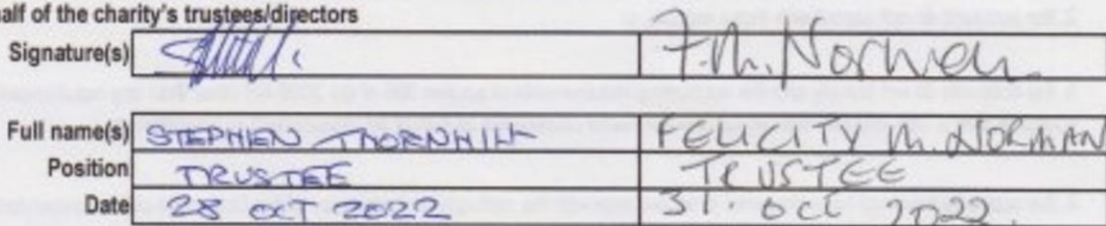 alf of the charity's trustees/directors
Signature(s) F.M. Norman
Full name(s) STEPHEN THORNHILL FELICITY M. NORMAN
Position TRUSTEE TRUSTEE
Date 28 OCT 2022 31 Oct 2022.